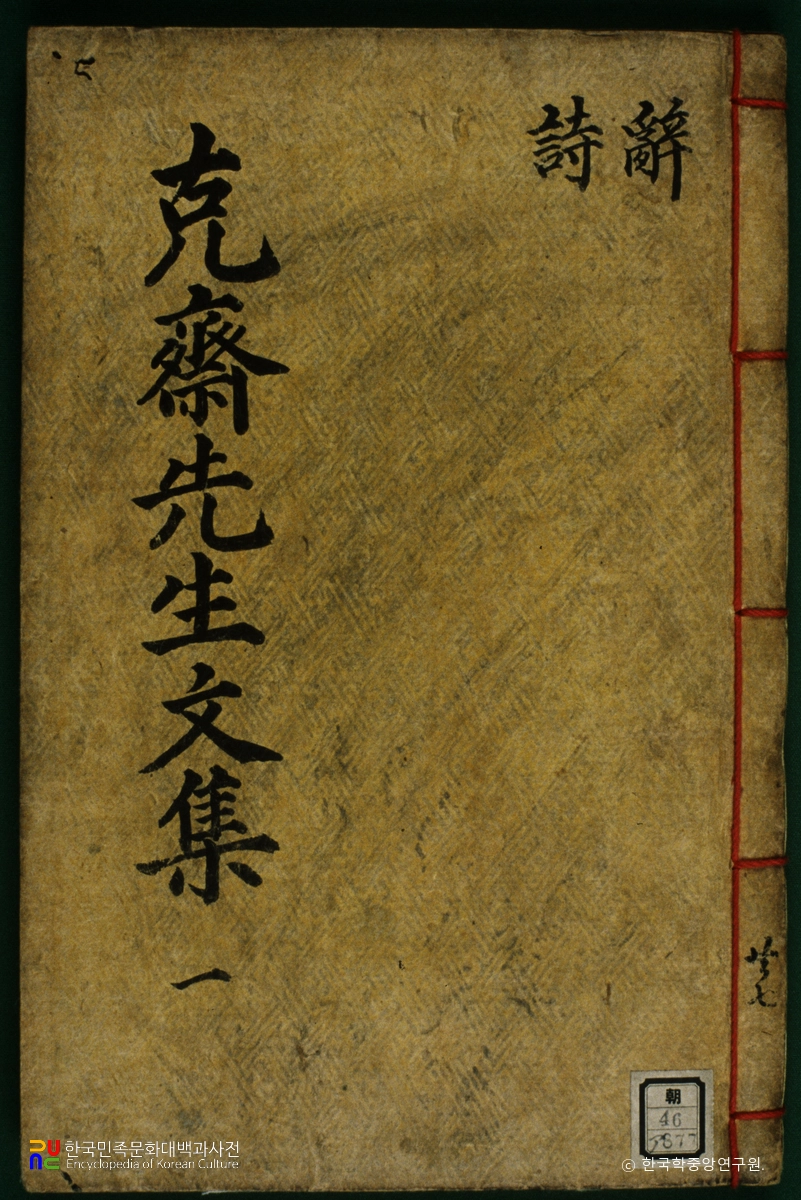 辭
詩
克齋先生文集 一
共七
朝
46
한국민족문화대백과사전
Encyclopedia of Korean Culture
© 한국학중앙연구원.